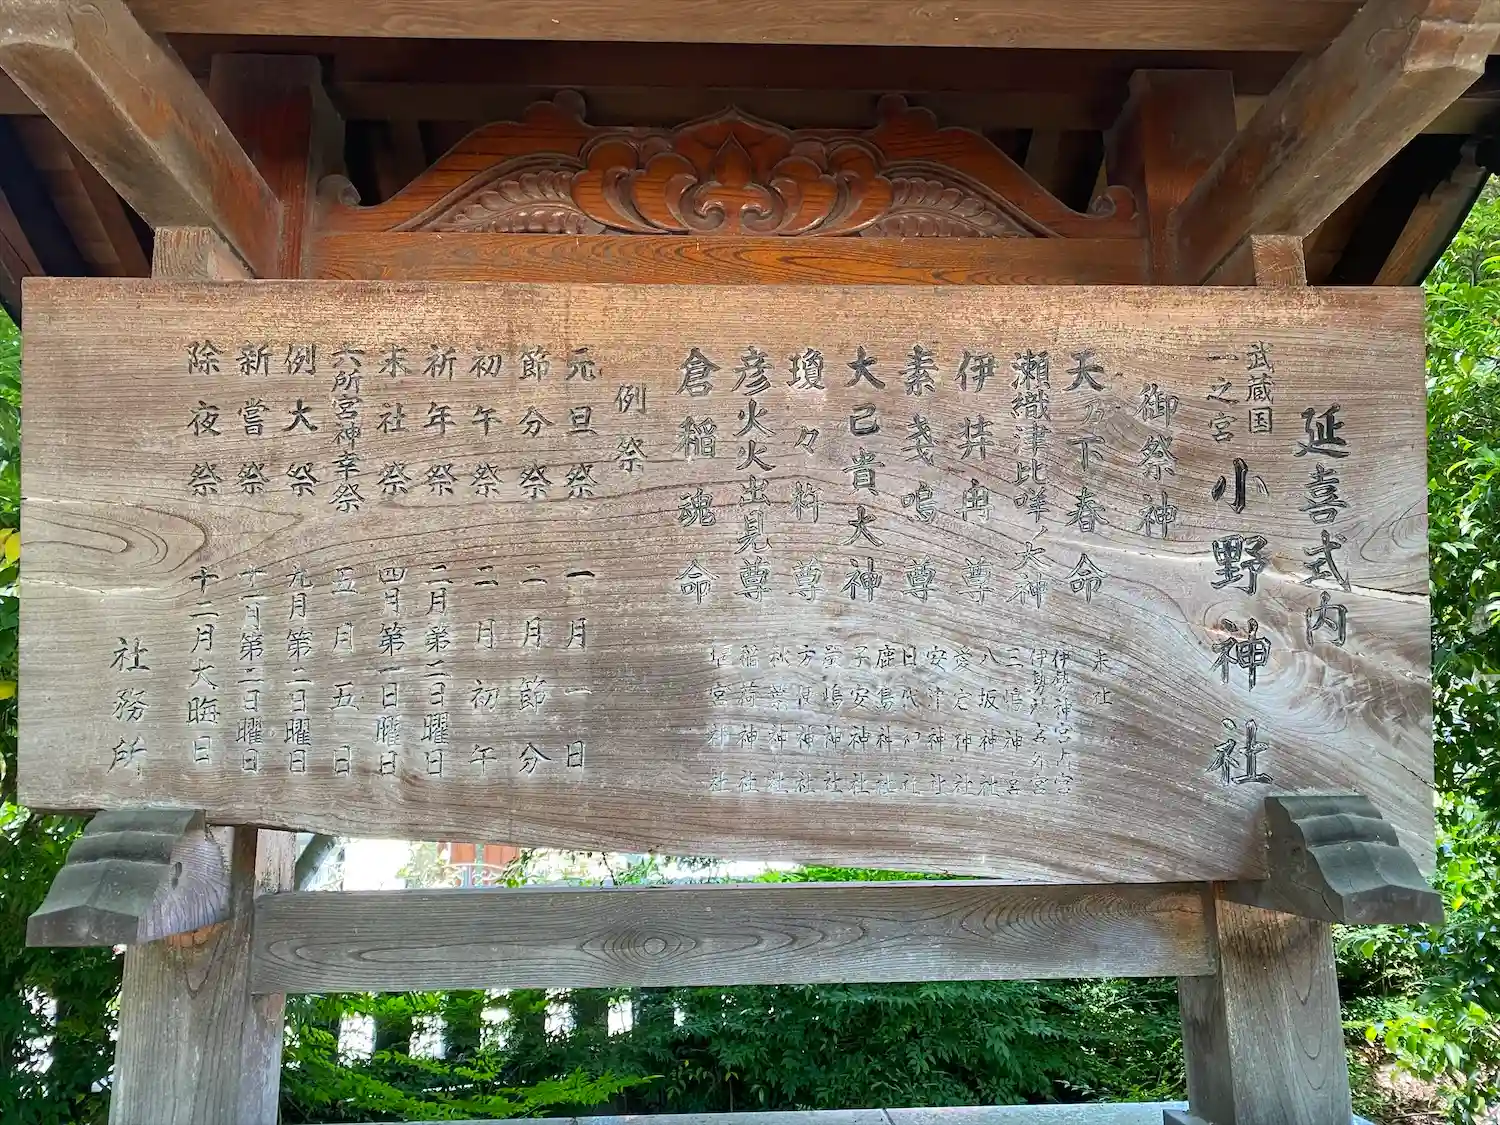 延喜式内
武蔵国
一之宮
小野神社
御祭神
天乃下春命
瀬織津比咩ノ大神
伊弉冉尊
素戔鳴尊
大己貴大神
瓊々杵尊
彦火火出見尊
倉稲魂命
末社
伊勢神宮内宮
伊勢神宮外宮
三嶋神宮
八坂神社
愛宕神社
安津神社
日代神社
鹿島神社
子安神社
厳嶋神社
方便神社
秋葉神社
稲荷神社
堰宮神社
例祭
元旦祭 一月一日
節分祭 二月節分
初午祭 二月初午
祈年祭 二月第二日曜日
末社祭 四月第一日曜日
六所宮神幸祭 五月五日
例大祭 九月第二日曜日
新嘗祭 十一月第二日曜日
除夜祭 十二月大晦日
社務所